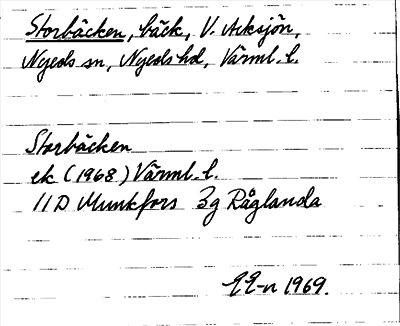 Storbäcken, bäck, V. Acksjön,
Nyeds sn, Nyeds hd, Värml. l.
Storbäcken
ek (1968) Värml. l.
11D Munkfors 3g Råglanda
1969.